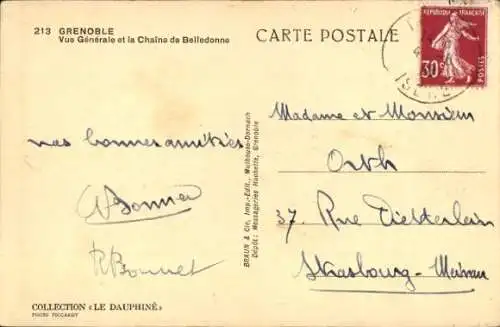 213 GRENOBLE
Vue Générale et la Chaîne de Belledonne
CARTE POSTALE
RÉPUBLIQUE FRANÇAISE
30c
POSTES
ISÈRE
nos bonnes amitiés
Bonnet
R Bonnet
BRAUN & Cie, Imp.-Édit., Mulhouse-Dornach
Dépôt : Messageries Hachette, Grenoble
Madame et Monsieur
Orth
37 Rue Dietterlin
Strasbourg - Meinau
COLLECTION «LE DAUPHINÉ»